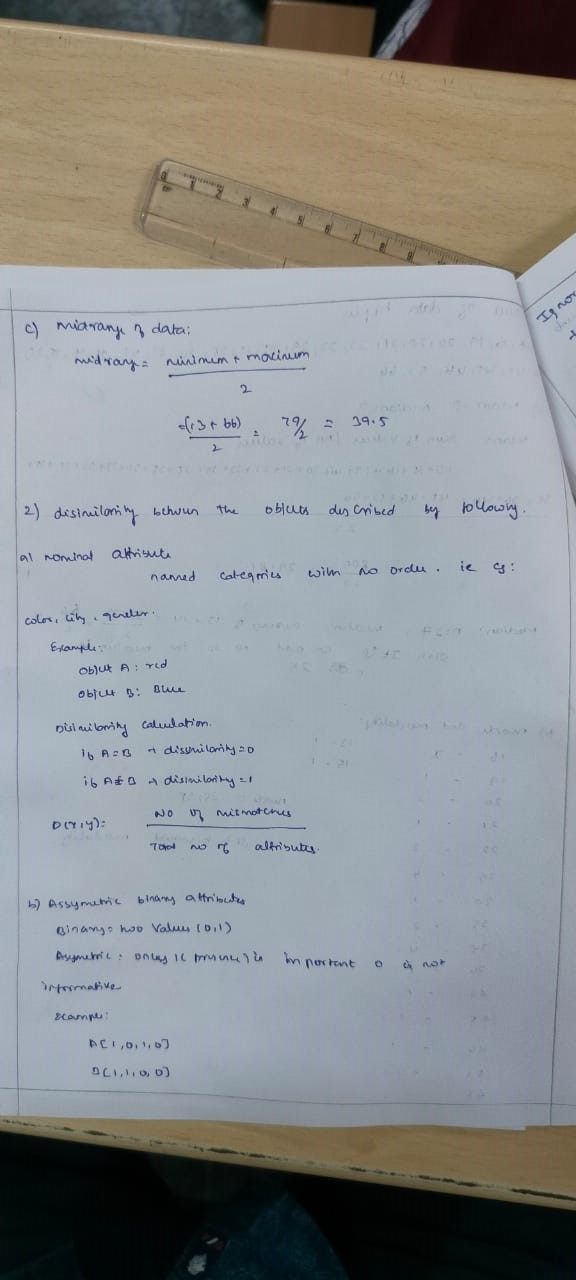 0 1 2 3 4 5 6 7 8 9
Ignor
c) midrange of data:
midrange = minimum + maximum
2
(13 + 66)
2
= 79/2 = 39.5
2) disimilarity between the objects described by following.
a) nominal attribute
named categories with no order. ie eg:
color, city, gender.
Example:
Object A: red
Object B: Blue
Disimilarity calculation.
if A=B → dissimilarity=0
if A≠B → disimilarity=1
D(x,y): No of mismatches
Total no of attributes.
b) Assymetric binary attributes
Binary= two values (0,1)
Asymetric: only 1( presence) is important 0 is not
informative
Example:
A[1,0,1,0]
B[1,1,0,0]